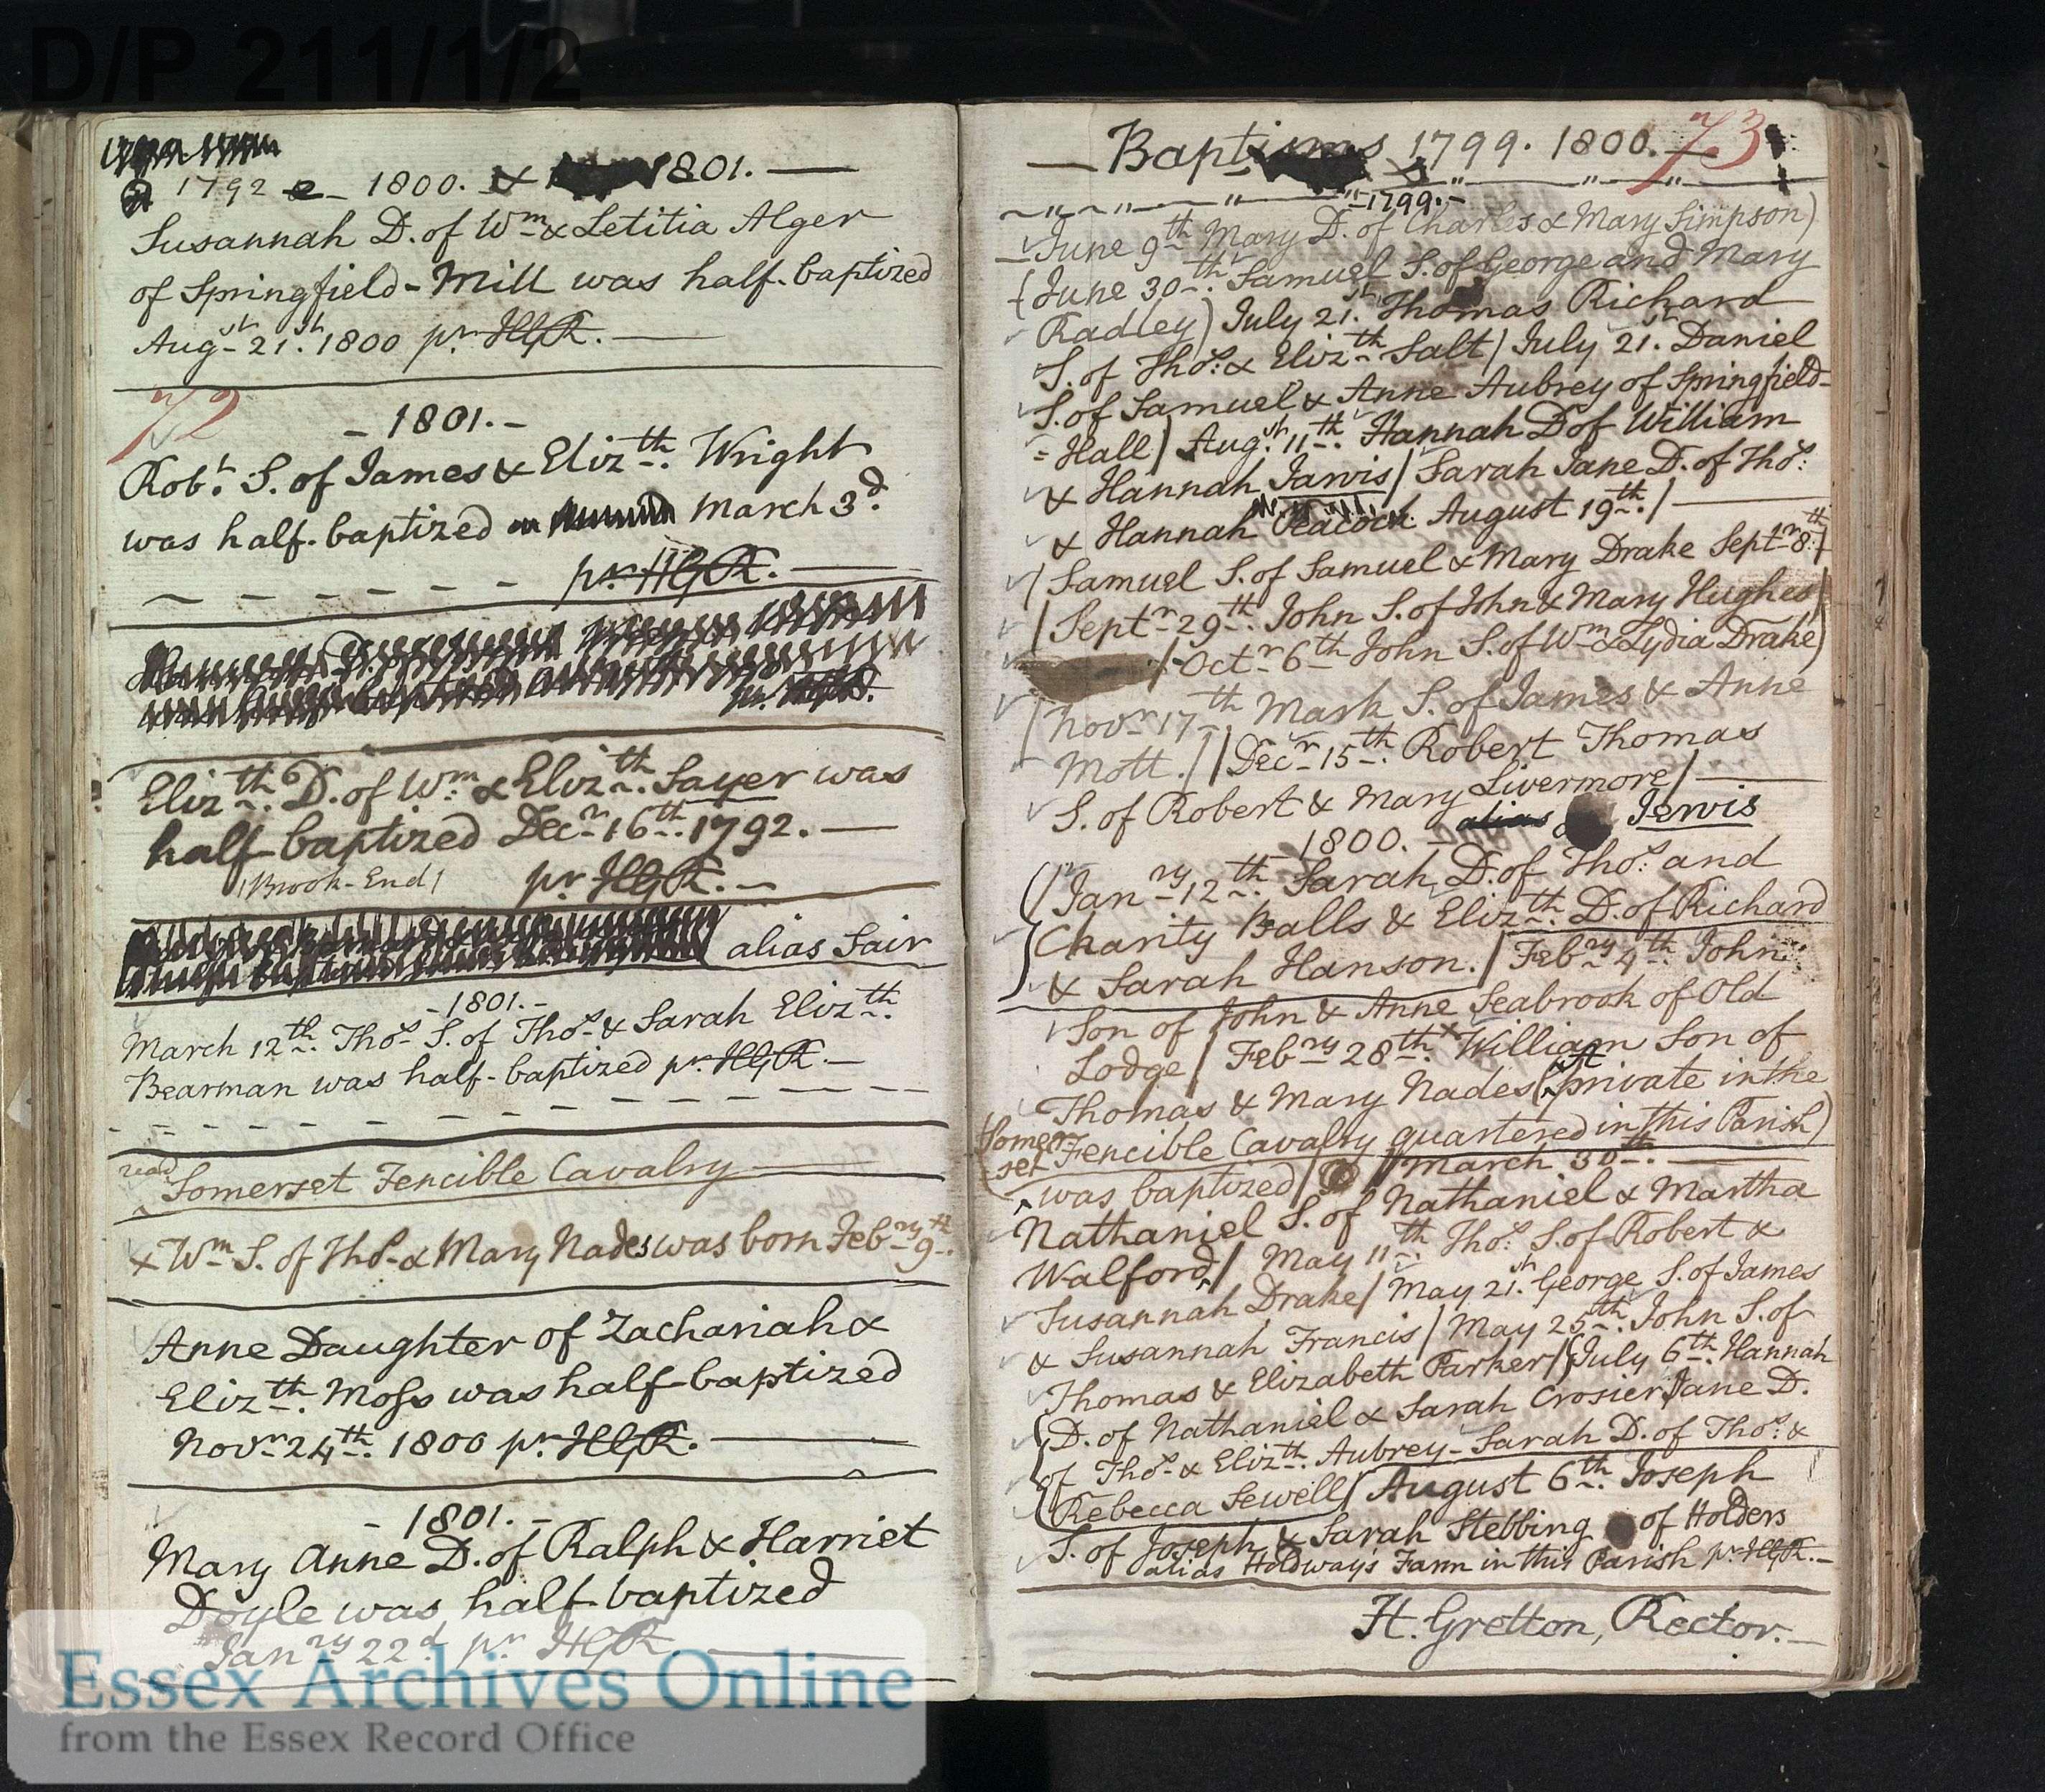 D/P 211/1/2
1792 1800. & 1801. —
Susannah D. of Wm & Letitia Alger
of Springfield-Mill was half-baptized
Augst 21st. 1800 pr HGR. —
72
- 1801. -
Robt. S. of James & Elizth. Wright
was half-baptized March 3d.
pr HGR. —
Elizth. D. of Wm. & Elizth. Sayer was
half-baptized Decr 16th. 1792. —
/Brook-End/ pr HGR. —
alias Sair
- 1801. -
March 12th. Thos. S. of Thos. & Sarah Elizth.
Bearman was half-baptized pr HGR. —
read
Somerset Fencible Cavalry —
x Wm S. of Thos. & Mary Nades was born Febry 9th.
Anne Daughter of Zachariah &
Elizth. Moss was half-baptized
Novr 24th. 1800 pr HGR. —
- 1801. -
Mary Anne D. of Ralph & Harriet
Doyle was half-baptized
Janry 22d pr HGR
— Baptisms 1799. 1800. —
73
- 1799. -
June 9th Mary D. of Charles & Mary Simpson)
(June 30th. Samuel S. of George and Mary
Radley) July 21st. Thomas Richard
S. of Thos. & Elizth Salt / July 21st. Daniel
S. of Samuel & Anne Aubrey of Springfield-
= Hall / Augst. 11th. Hannah D of William
& Hannah Jarvis / Sarah Jane D. of Thos.
& Hannah Peacock August 19th. / —
/ Samuel S. of Samuel & Mary Drake Septr 8th. /
/ Septr 29th. John S. of John & Mary Hughes /
/ Octr 6th John S. of Wm & Lydia Drake)
/ Novr 17th Mark S. of James & Anne
Mott. / / Decr 15th. Robert Thomas
S. of Robert & Mary Livermore / —
1800. - alias Jervis
(/ Janry 12th. Sarah D. of Thos. and
Charity Balls & Elizth D. of Richard
& Sarah Hanson. / Febry 4th. John
Son of John & Anne Seabrook of Old
Lodge / Febry 28th. x William Son of
Thomas & Mary Nades (a private in the
Somerset Fencible Cavalry quartered in this Parish)
was baptized / March 30th. —
Nathaniel S. of Nathaniel & Martha
Walford / May 11th Thos. S. of Robert &
Susannah Drake / May 21st. George S. of James
& Susannah Francis / May 25th. John S. of
Thomas & Elizabeth Parker / (July 6th. Hannah
D. of Nathaniel & Sarah Crosier / Jane D.
of Thos. & Elizth. Aubrey - Sarah D. of Thos. &
Rebecca Sewell / August 6th. Joseph
S. of Joseph & Sarah Stebbing of Holders
alias Holdways Farm in this Parish pr HGR. —
H. Gretton, Rector. —
Essex Archives Online
from the Essex Record Office